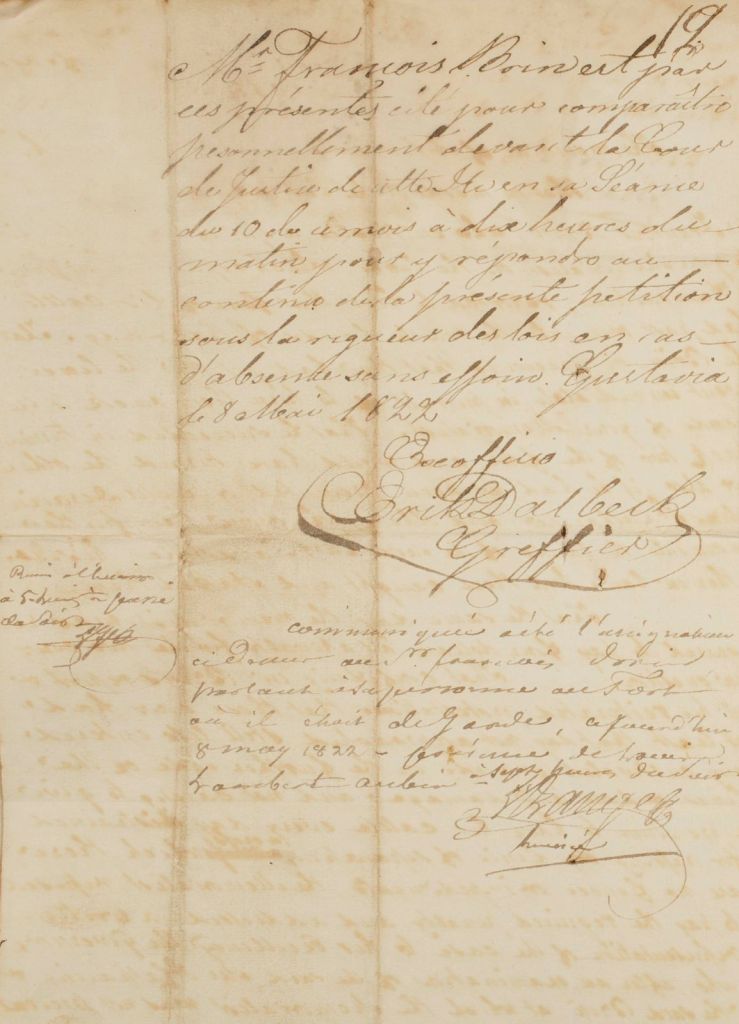 19
Mr. François Brin est par
ces présentes cité pour comparaître
personnellement devant la Cour
de Justice de cette Ile en sa Séance
du 10 de ce mois à dix heures du
matin pour y répondre au
contenu de la présente petition
sous la rigueur des lois en cas
d'absence sans essoin. Gustavia
le 8 Mai 1822
Exofficio
Erik Dalbeck
Greffier
Remis à l'huissier
à 5 heures
communiqué a été l'assignation
ci Dessus au Sr. françois
parlant à sa personne au Fort
où il était de Garde, aujourd'huy
8 may 1822 - présence de
Lambert aubin à sept heures du soir
huissier